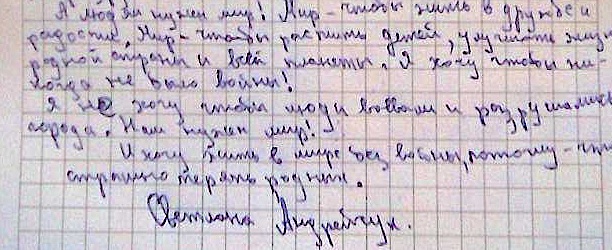 А людям нужен мир! Мир - чтобы жить в дружбе и
радости. Мир - чтобы растить детей, улучшать жизнь
родной страны и всей планеты. Я хочу чтобы ни-
когда не было войны!
Я не хочу чтобы люди воевали и разрушались
города. Нам нужен мир!
Я хочу жить в мире без войны, потому - что
страшно терять родных.
Светлана Андрейчук.